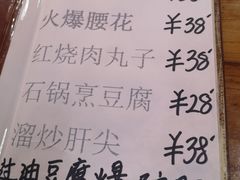 火爆腰花 ¥38'
红烧肉丸子 ¥38'
石锅烹豆腐 ¥28'
溜炒肝尖 ¥38'
油豆腐爆